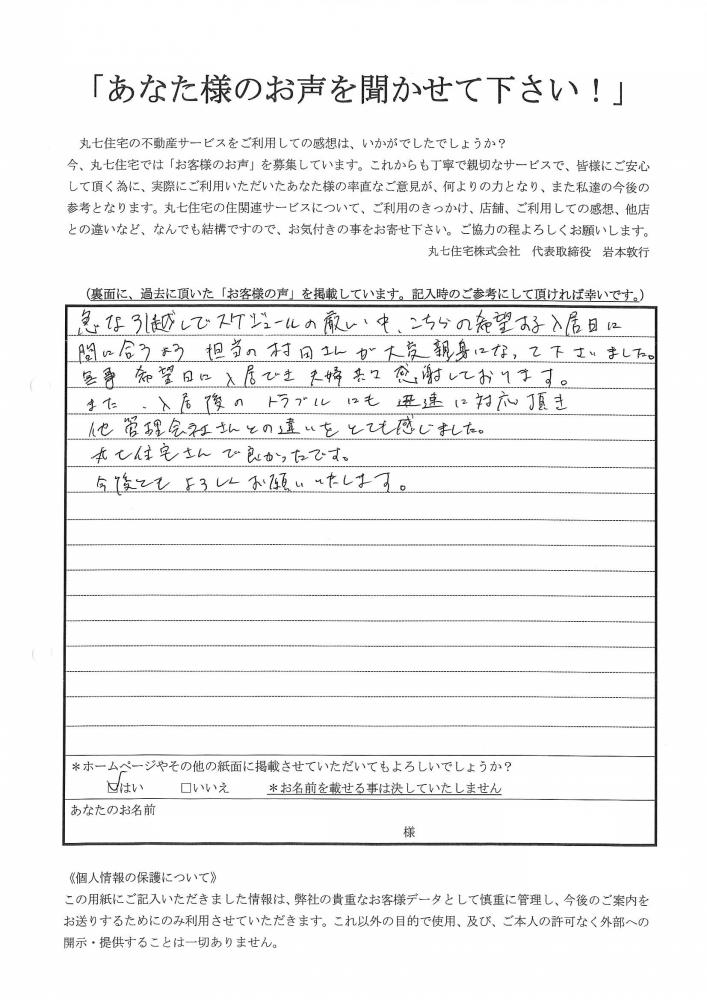 「あなた様のお声を聞かせて下さい！」
丸七住宅の不動産サービスをご利用しての感想は、いかがでしたでしょうか？
今、丸七住宅では「お客様のお声」を募集しています。これからも丁寧で親切なサービスで、皆様にご安心
して頂く為に、実際にご利用いただいたあなた様の率直なご意見が、何よりの力となり、また私達の今後の
参考となります。丸七住宅の住関連サービスについて、ご利用のきっかけ、店舗、ご利用しての感想、他店
との違いなど、なんでも結構ですので、お気付きの事をお寄せ下さい。ご協力の程よろしくお願いします。
丸七住宅株式会社　代表取締役　岩本敦行
（裏面に、過去に頂いた「お客様の声」を掲載しています。記入時のご参考にして頂ければ幸いです。）
急な引越しでスケジュールの厳しい中、こちらの希望する入居日に
間に合うよう 担当の村田さんが大変親身になって下さいました。
無事 希望日に入居でき 夫婦共に感謝しております。
また、入居後の トラブルにも 迅速に対応頂き
他管理会社さんとの違いをとても感じました。
丸七住宅さんで良かったです。
今後とも よろしく お願いいたします。
＊ホームページやその他の紙面に掲載させていただいてもよろしいでしょうか？
☑はい　□いいえ　＊お名前を載せる事は決していたしません
あなたのお名前
様
《個人情報の保護について》
この用紙にご記入いただきました情報は、弊社の貴重なお客様データとして慎重に管理し、今後のご案内を
お送りするためにのみ利用させていただきます。これ以外の目的で使用、及び、ご本人の許可なく外部への
開示・提供することは一切ありません。